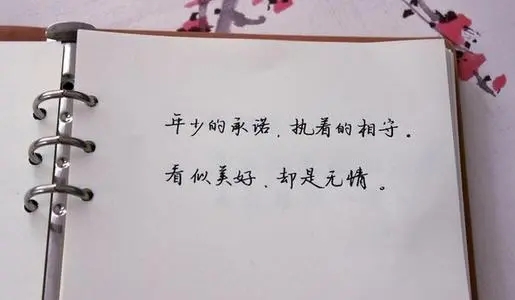 年少的承诺，执着的相守。
看似美好，却是无情。